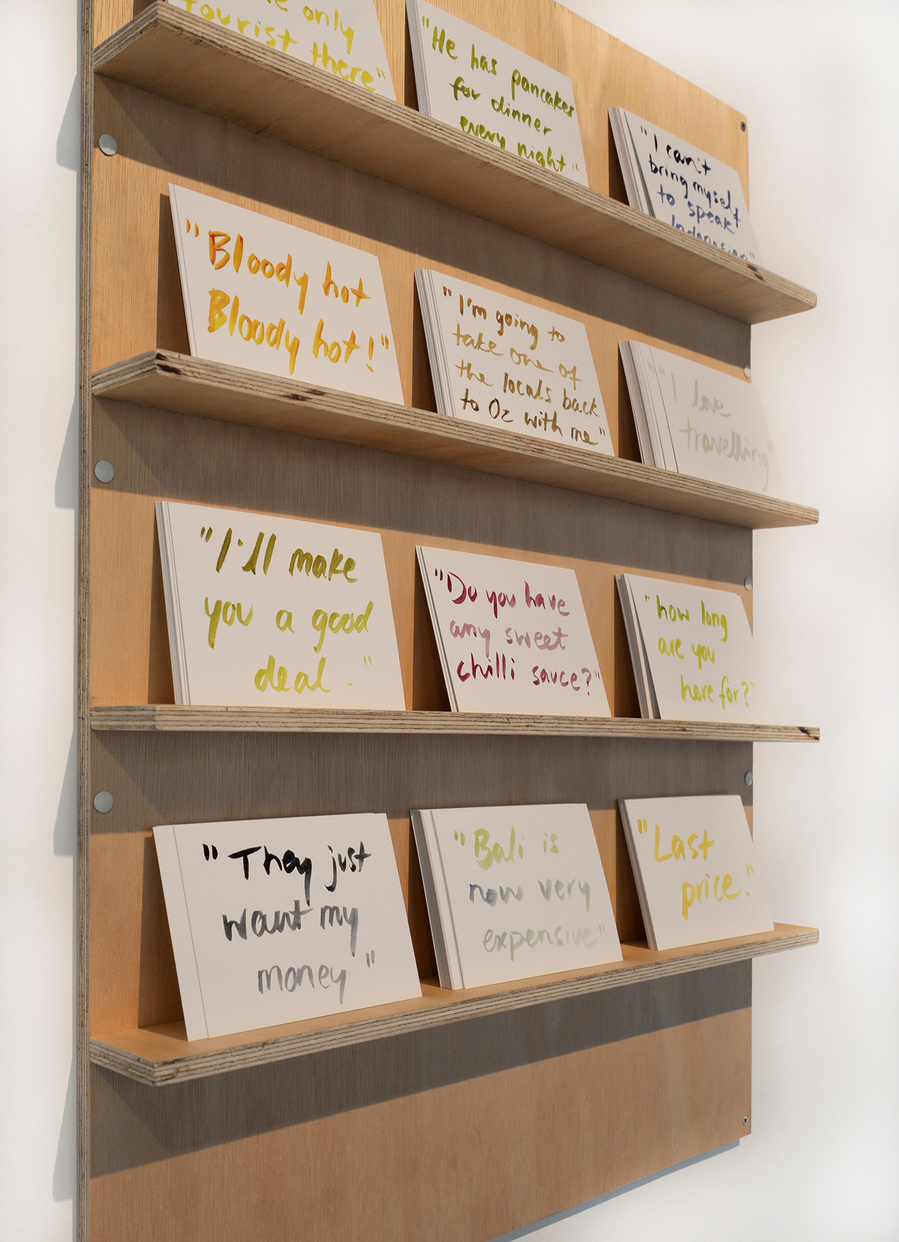 only
tourist there"
"He has pancakes
for dinner
every night"
"I can't
bring myself
to speak
Indonesian"
"Bloody hot
Bloody hot!"
"I'm going to
take one of
the locals back
to Oz with me"
"I love
travelling"
"I'll make
you a good
deal."
"Do you have
any sweet
chilli sauce?"
"how long
are you
here for?"
"They just
want my
money"
"Bali is
now very
expensive"
"Last
price."